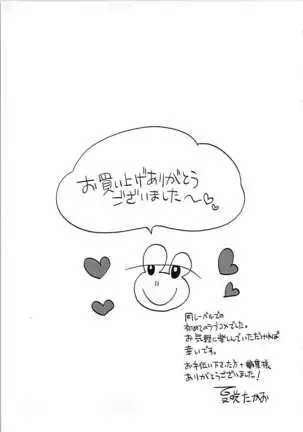 お買い上げありがとう
ございました〜♡
同レーベルでの
初めてのラブコメでした。
お気軽に楽しんでいただければ
幸いです。
お手伝い下さった方+編集様
ありがとうございました!
夏咲たかお